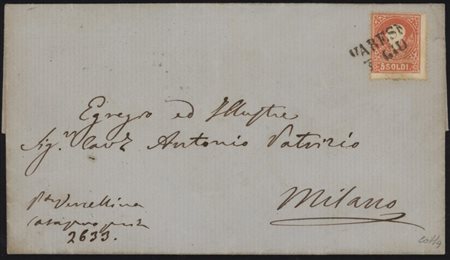 VARESE
GIU
5 SOLDI
Egregio ed Illustre
Sig.r Cav.e Antonio Patrizio
Milano
2633.